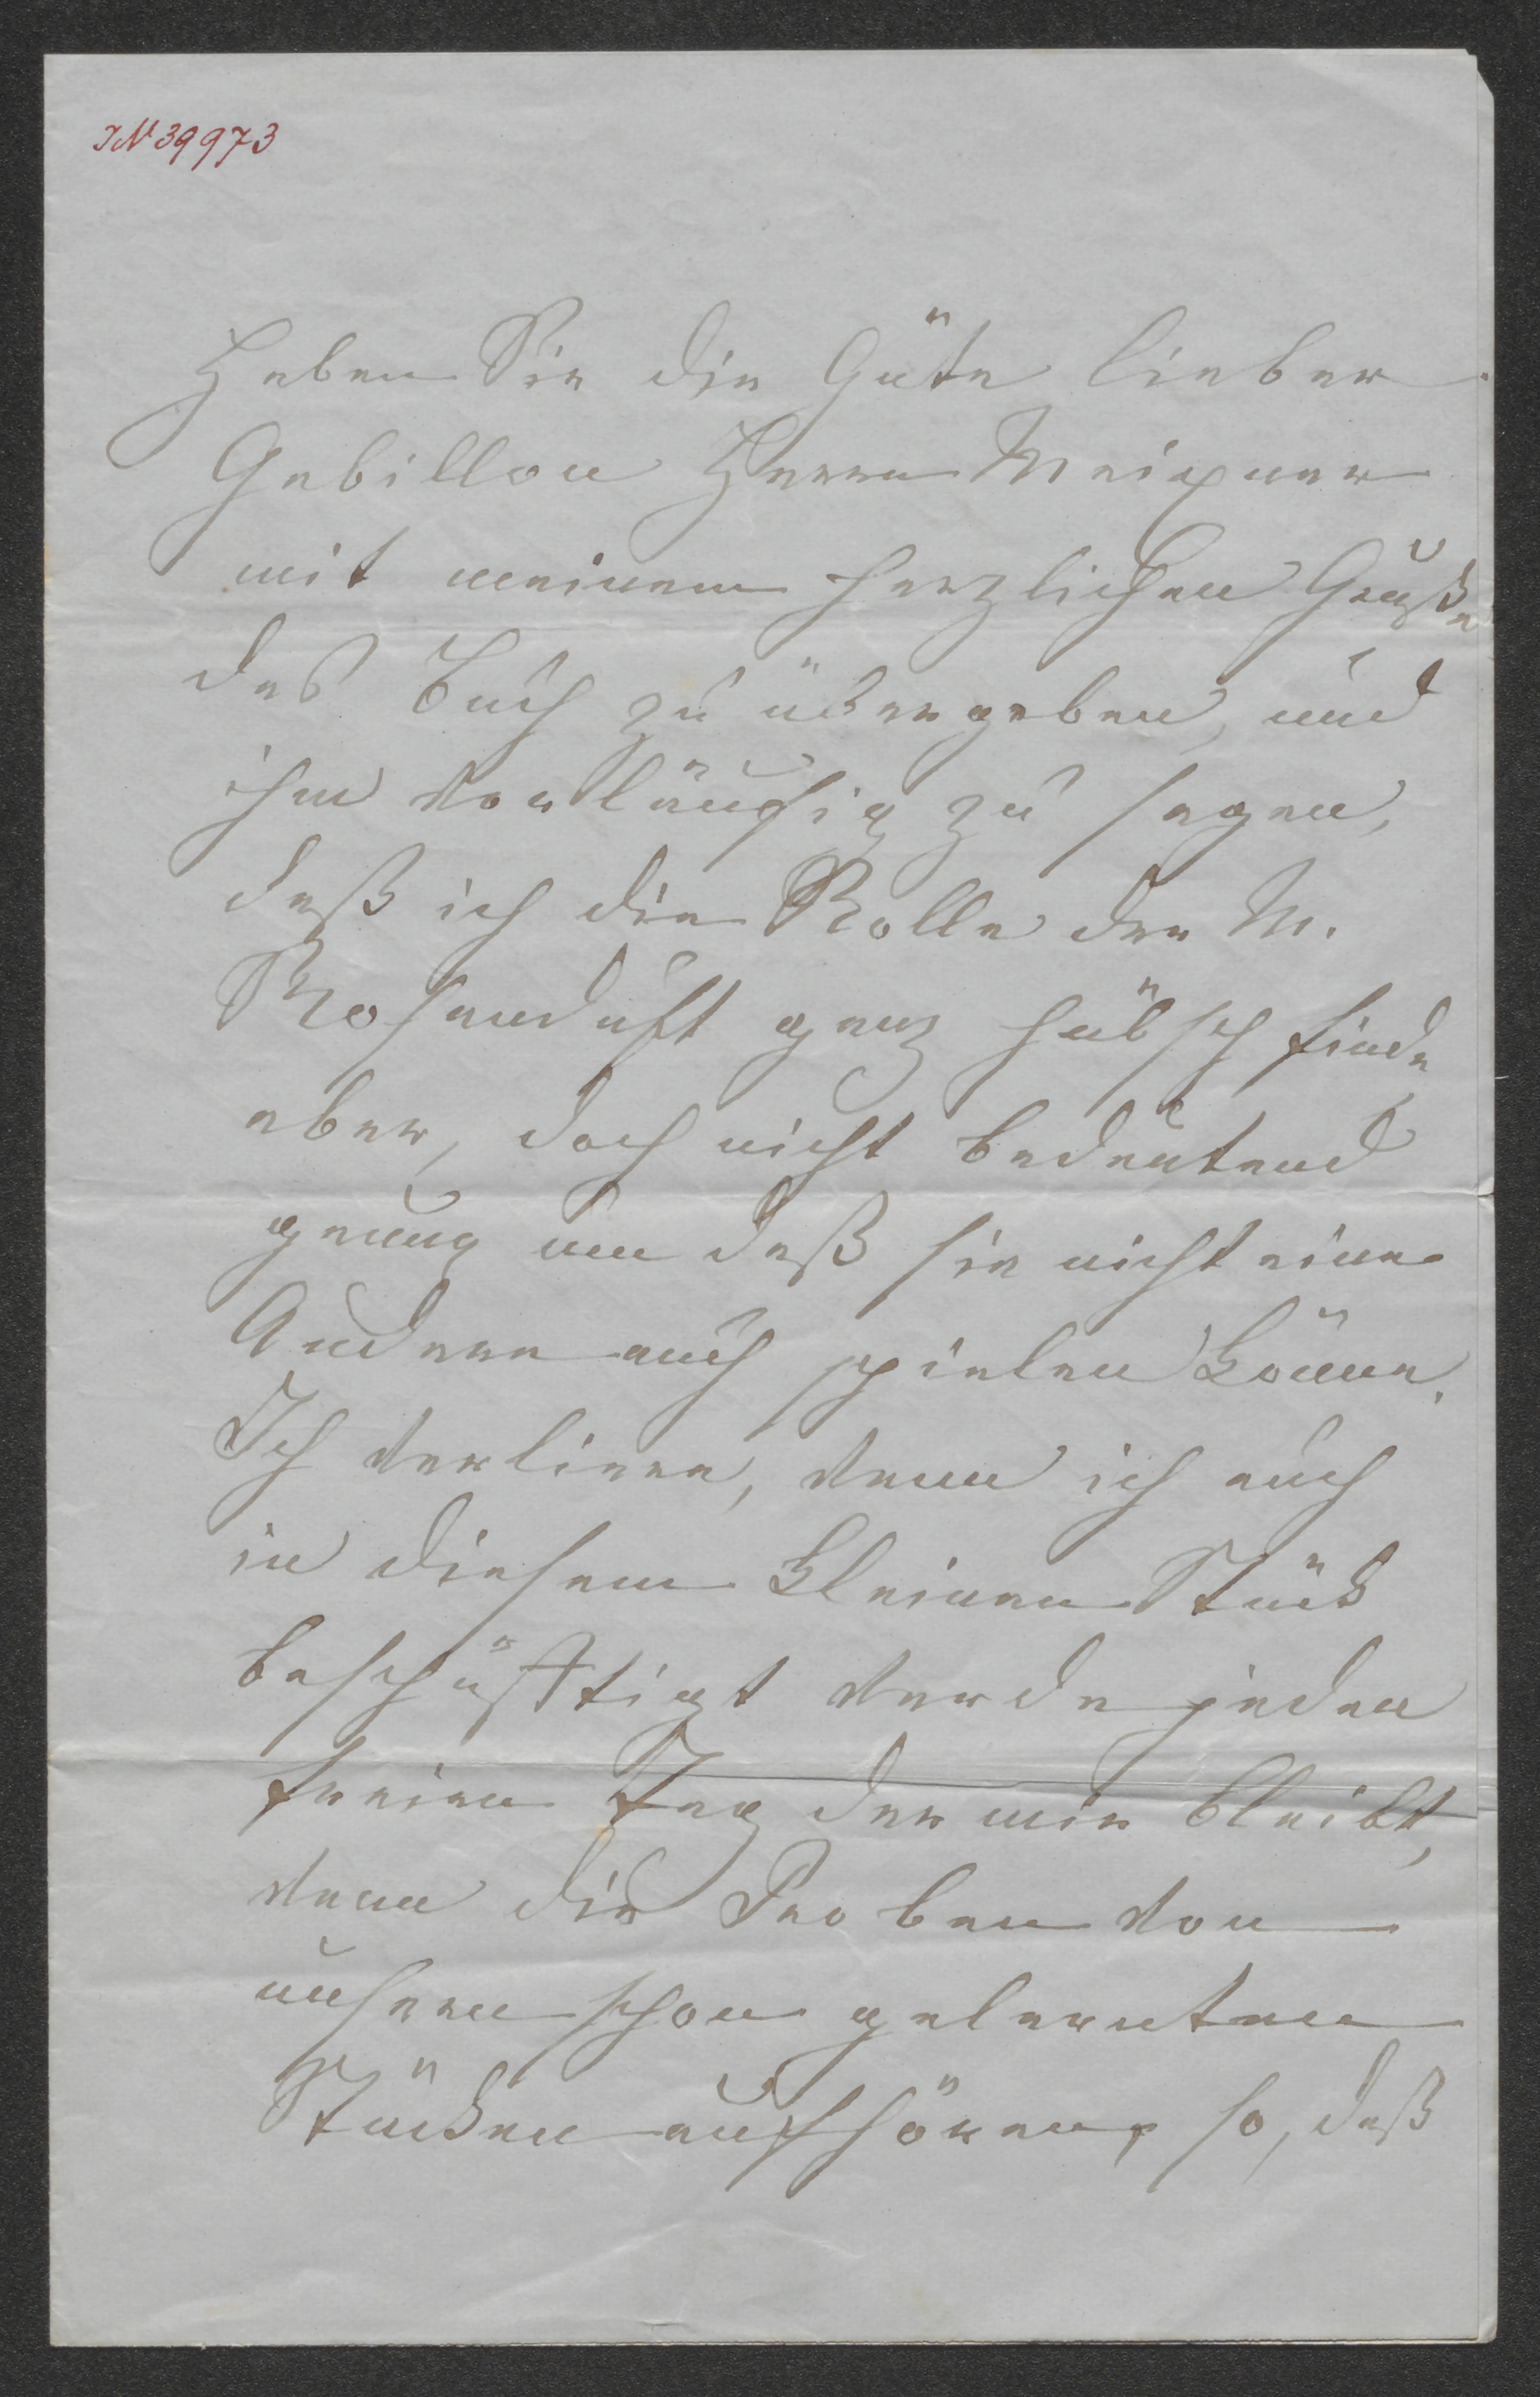 IN 39973
Haben Sie die Güte lieber
Gabillon Herrn Meixner
mit meinem herzlichen Gruße
das Buch zu übergeben, und
ihm vorläufig zu sagen,
daß ich die Rolle der M.
Rosenduft ganz hübsch finde
aber, doch nicht bedeutend
genug um daß sie nicht eine
Andere auch spielen könne.
Ich verliere, wenn ich auch
in diesem kleinen Stück
beschäfttigt werde jeden
freien Tag der mir bleibt,
wenn die Proben von
unsern schon gelernten
Stücken aufhören, so, daß